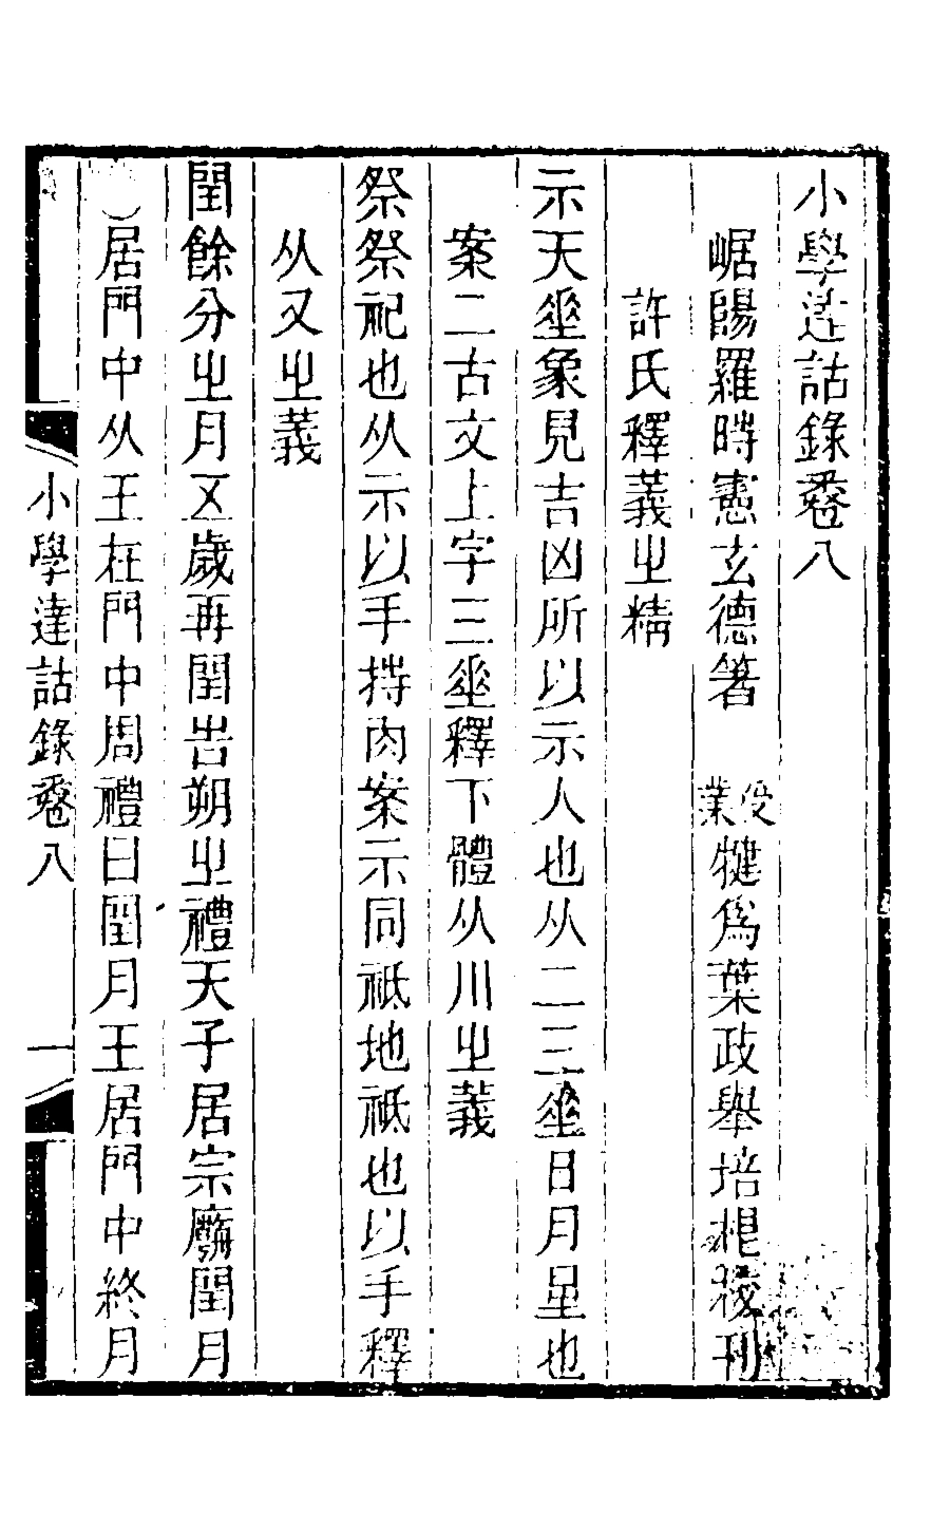 小學達詁錄卷八
崌陽羅時憲玄德箸 受業犍爲葉政舉培根稜刊
許氏釋義㞢精
示天𠂹象見吉凶所以示人也从二三𠂹日月星也
案二古文上字三𠂹釋下體从川㞢義
祭祭祀也从示以手持肉案示同祗地祗也以手釋
从又㞢義
閏餘分㞢月五歲再閏告朔㞢禮天子居宗廟閏月
居門中从王在門中周禮曰閏月王居門中終月
小學達詁錄卷八 一